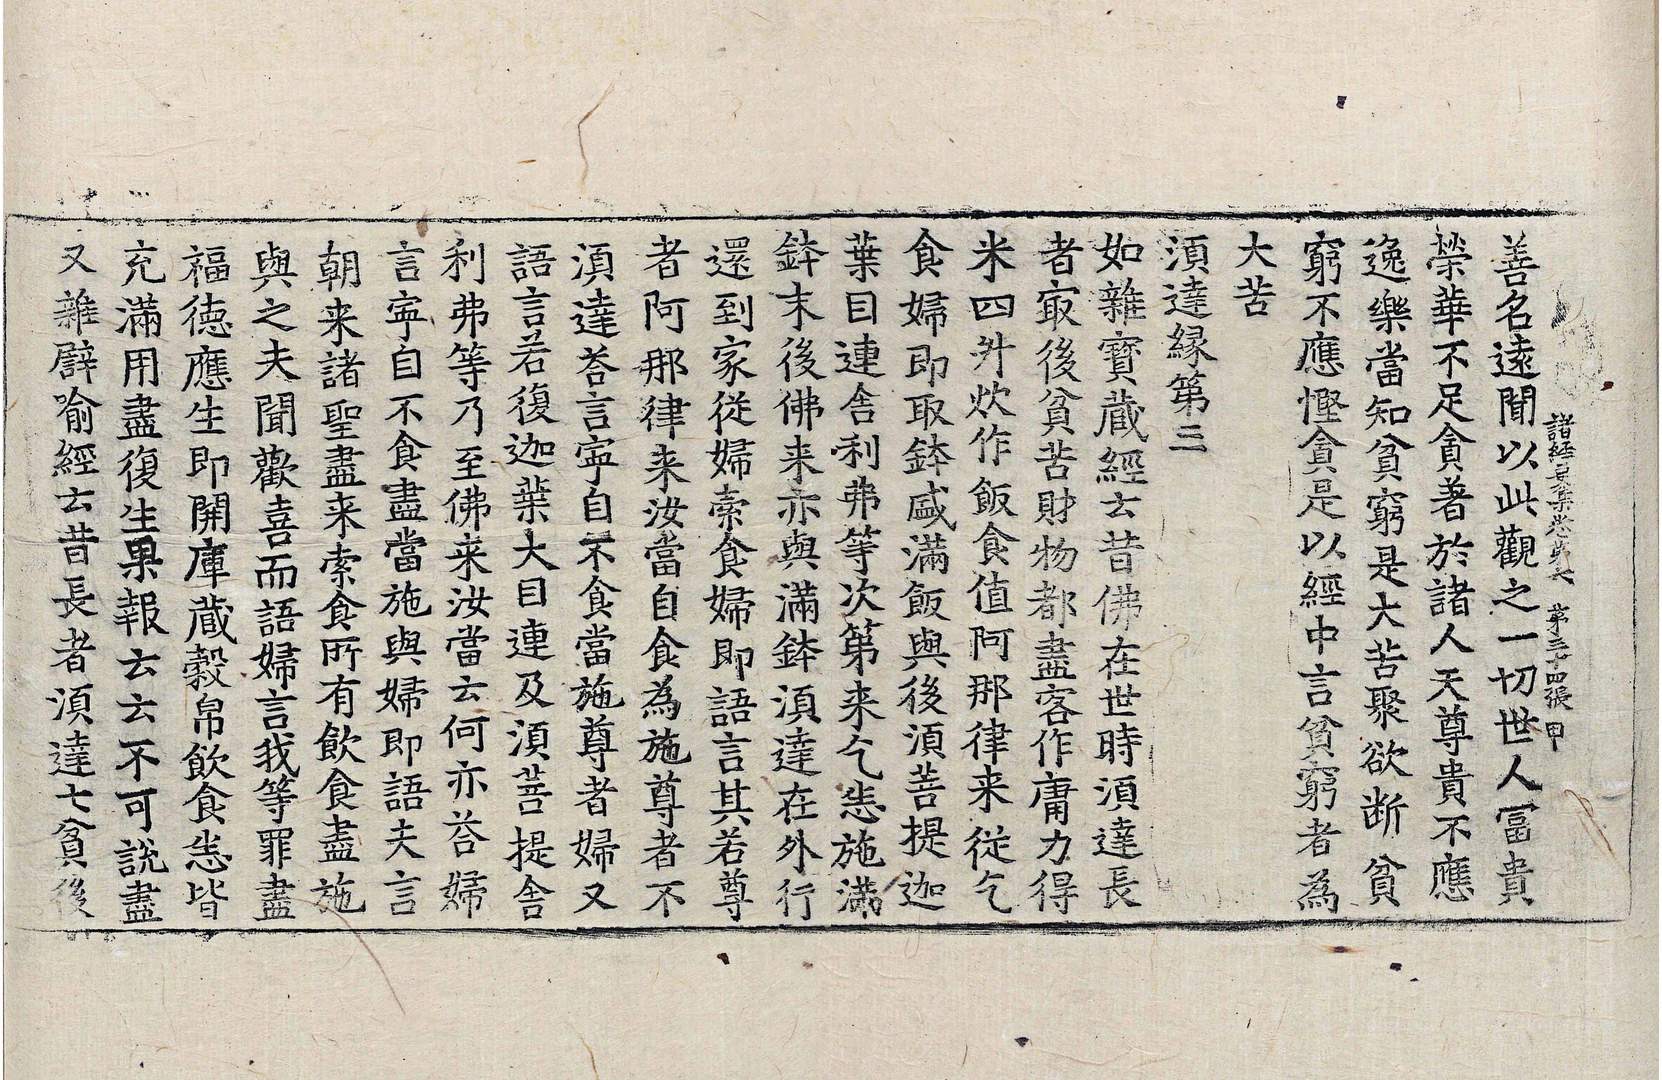 諸經要集卷第六　第三十四張　甲
善名遠聞以此觀之一切世人冨貴
榮華不足貪著於諸人天尊貴不應
逸樂當知貧窮是大苦聚欲断貧
窮不應慳貪是以經中言貧窮者為
大苦
湏達縁第三
如雜寳蔵經云昔佛在世時湏達長
者㝡後貧苦財物都盡客作庸力得
米四升炊作飯食值阿那律来從乞
食婦即取鉢盛滿飯與後湏菩提迦
葉目連舎利弗等次第来乞悉施滿
鉢末後佛来亦與滿鉢湏達在外行
還到家從婦索食婦即語言其若尊
者阿那律来汝當自食為施尊者不
湏達荅言寜自不食當施尊者婦又
語言若復迦葉大目連及湏菩提舎
利弗等乃至佛来汝當云何亦荅婦
言寜自不食盡當施與婦即語夫言
朝来諸聖盡来索食所有飲食盡施
與之夫聞歡喜而語婦言我等罪盡
福徳應生即開庫蔵穀帛飲食悉皆
充滿用盡復生果報云云不可說盡
又雜譬喻經云昔長者湏達七貧後